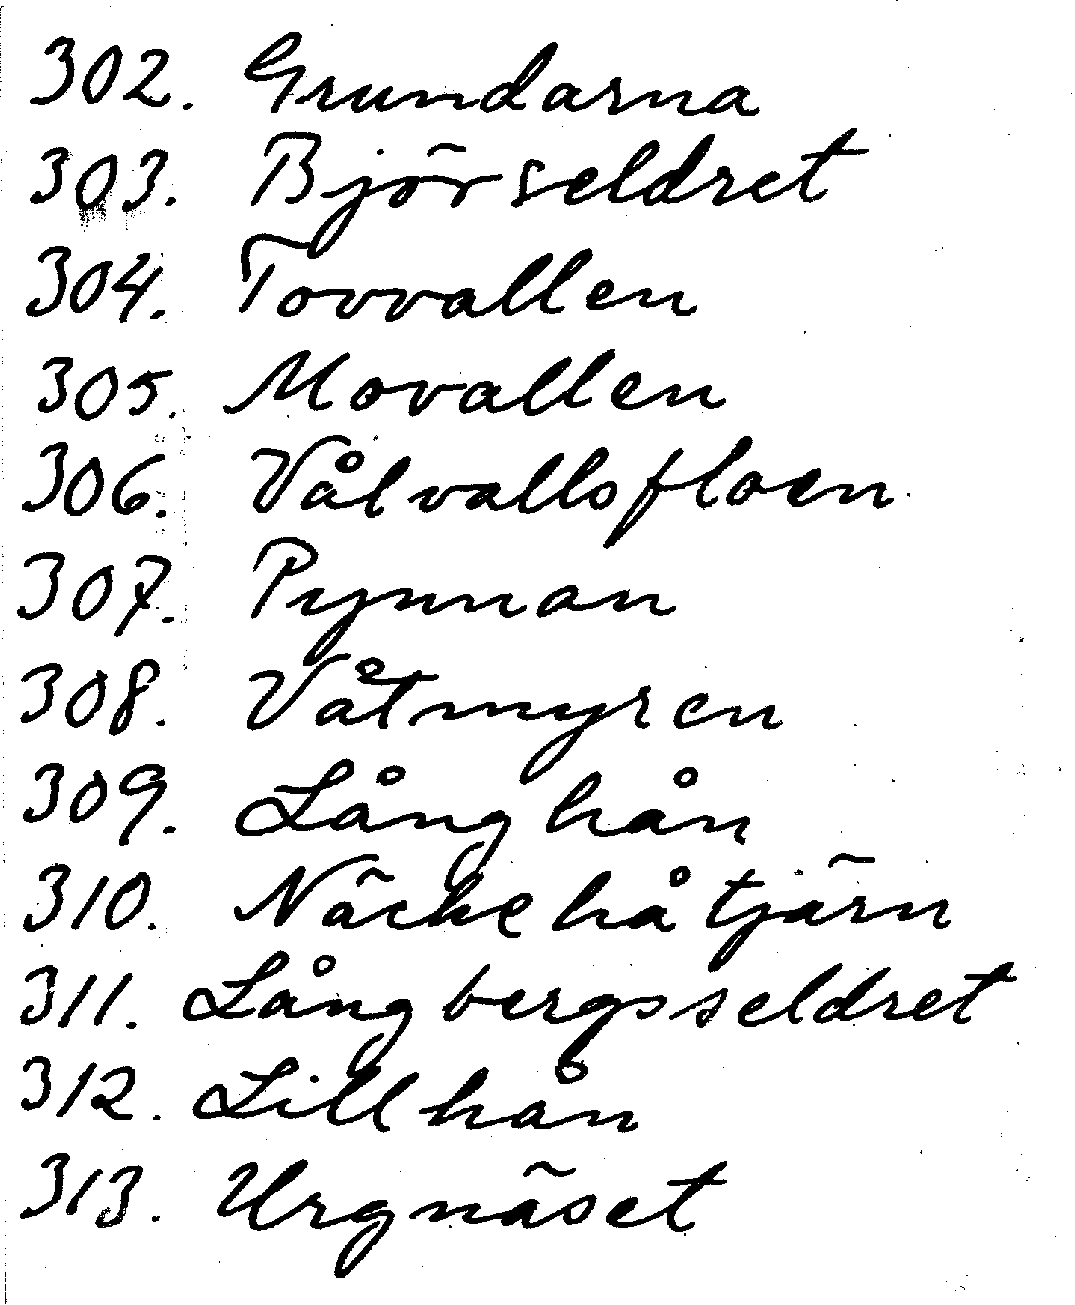 302. Grundarna
303. Björseldret
304. Tovvallen
305. Movallen
306. Vålvallsfloen
307. Pynnan
308. Våtmyren
309. Långhån
310. Näckehåtjärn
311. Långbergsseldret
312. Lillhån
313. Urgnäset